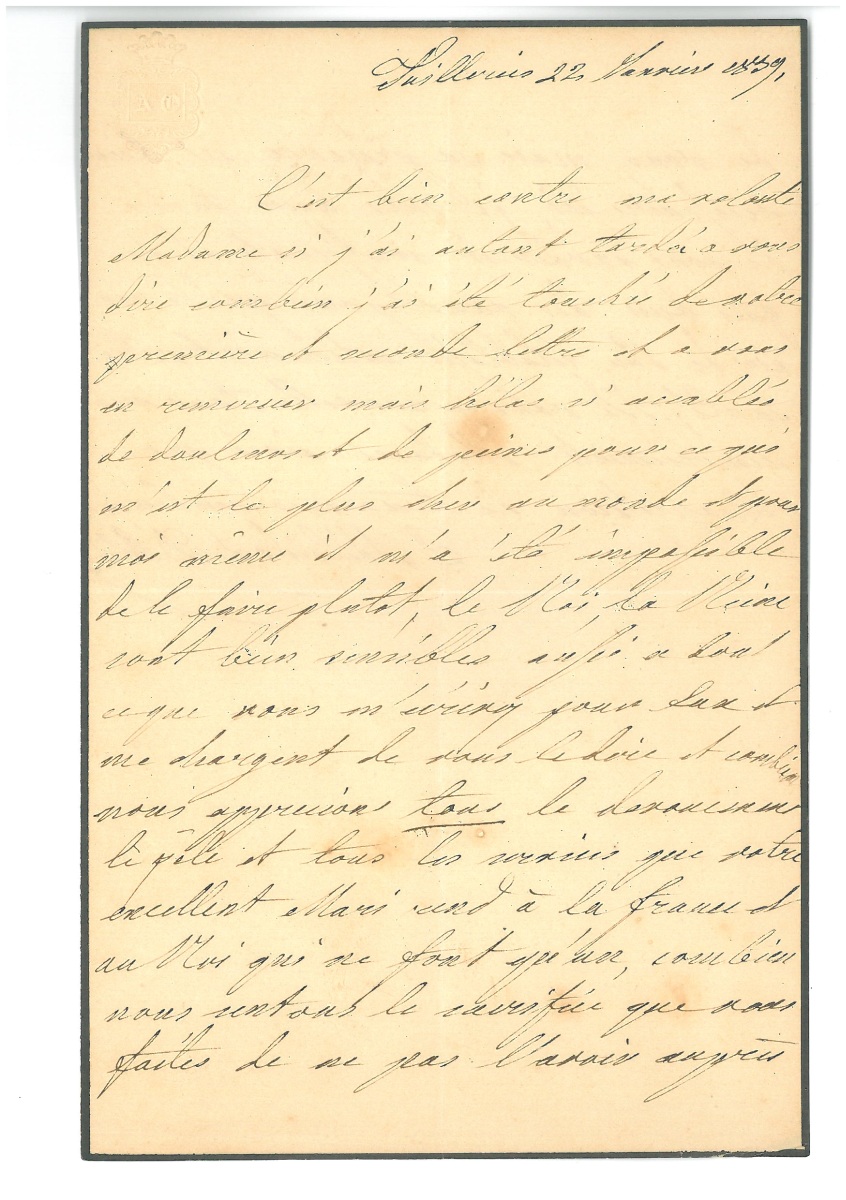 Tuilleries 22 Janvier 1839,
C'est bien contre ma volonté
Madame si j'ai autant tardé a vous
dire combien j'ai été touchée de votre
première et seconde lettre et a vous
en remercier mais hélas si accablée
de douleurs et de peines pour ce qui
m'est le plus cher au monde et pour
moi même il m'a été impossible
de le faire plutot, le Roi, la Reine
sont bien sensibles aussi a tout
ce que vous m'écrivez pour Eux et
me chargent de vous le dire et combien
nous apprecions tous le devouement
le zèle et tous les services que votre
excellent Mari rend à la france et
au Roi qui ne font qu'un, combien
nous sentons le sacrifice que vous
faites de ne pas l'avoir auprès